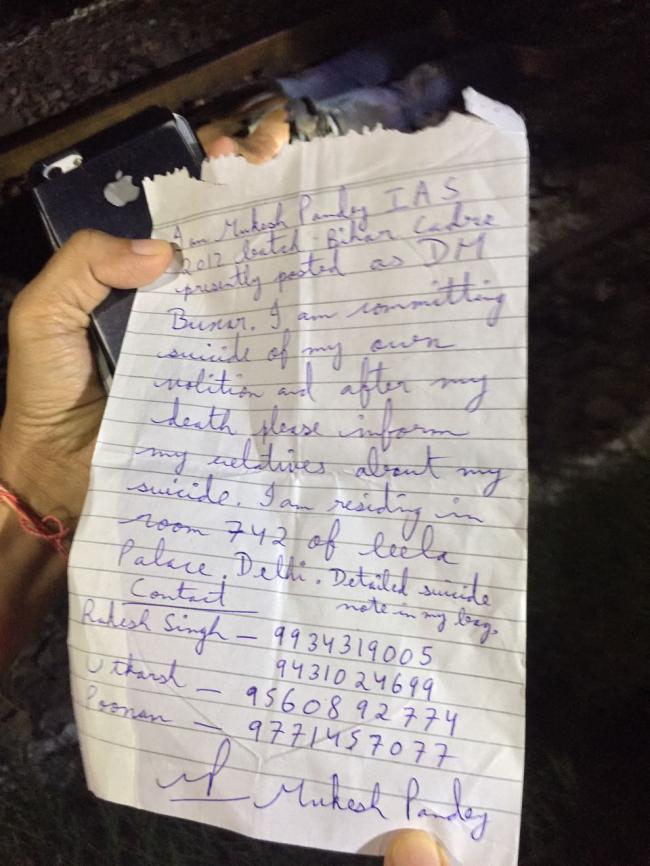 I am Mukesh Pandey IAS
2012 batch Bihar Cadre
presently posted as DM
Buxar. I am committing
suicide of my own
volition and after my
death please inform
my relatives about my
suicide. I am residing in
room 742 of leela
Palace, Delhi. Detailed suicide
note in my bag.
Contact
Rakesh Singh – 9934319005
9431024699
Utkarsh – 9560892774
Poonam – 9771457077
MP Mukesh Pandey